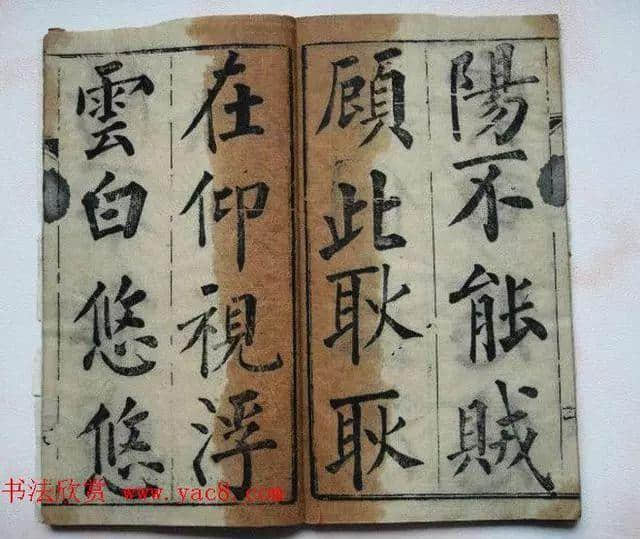 陽不能賊
顧此耿耿
在仰視浮
雲白悠悠
书法欣赏 www.yac8.com